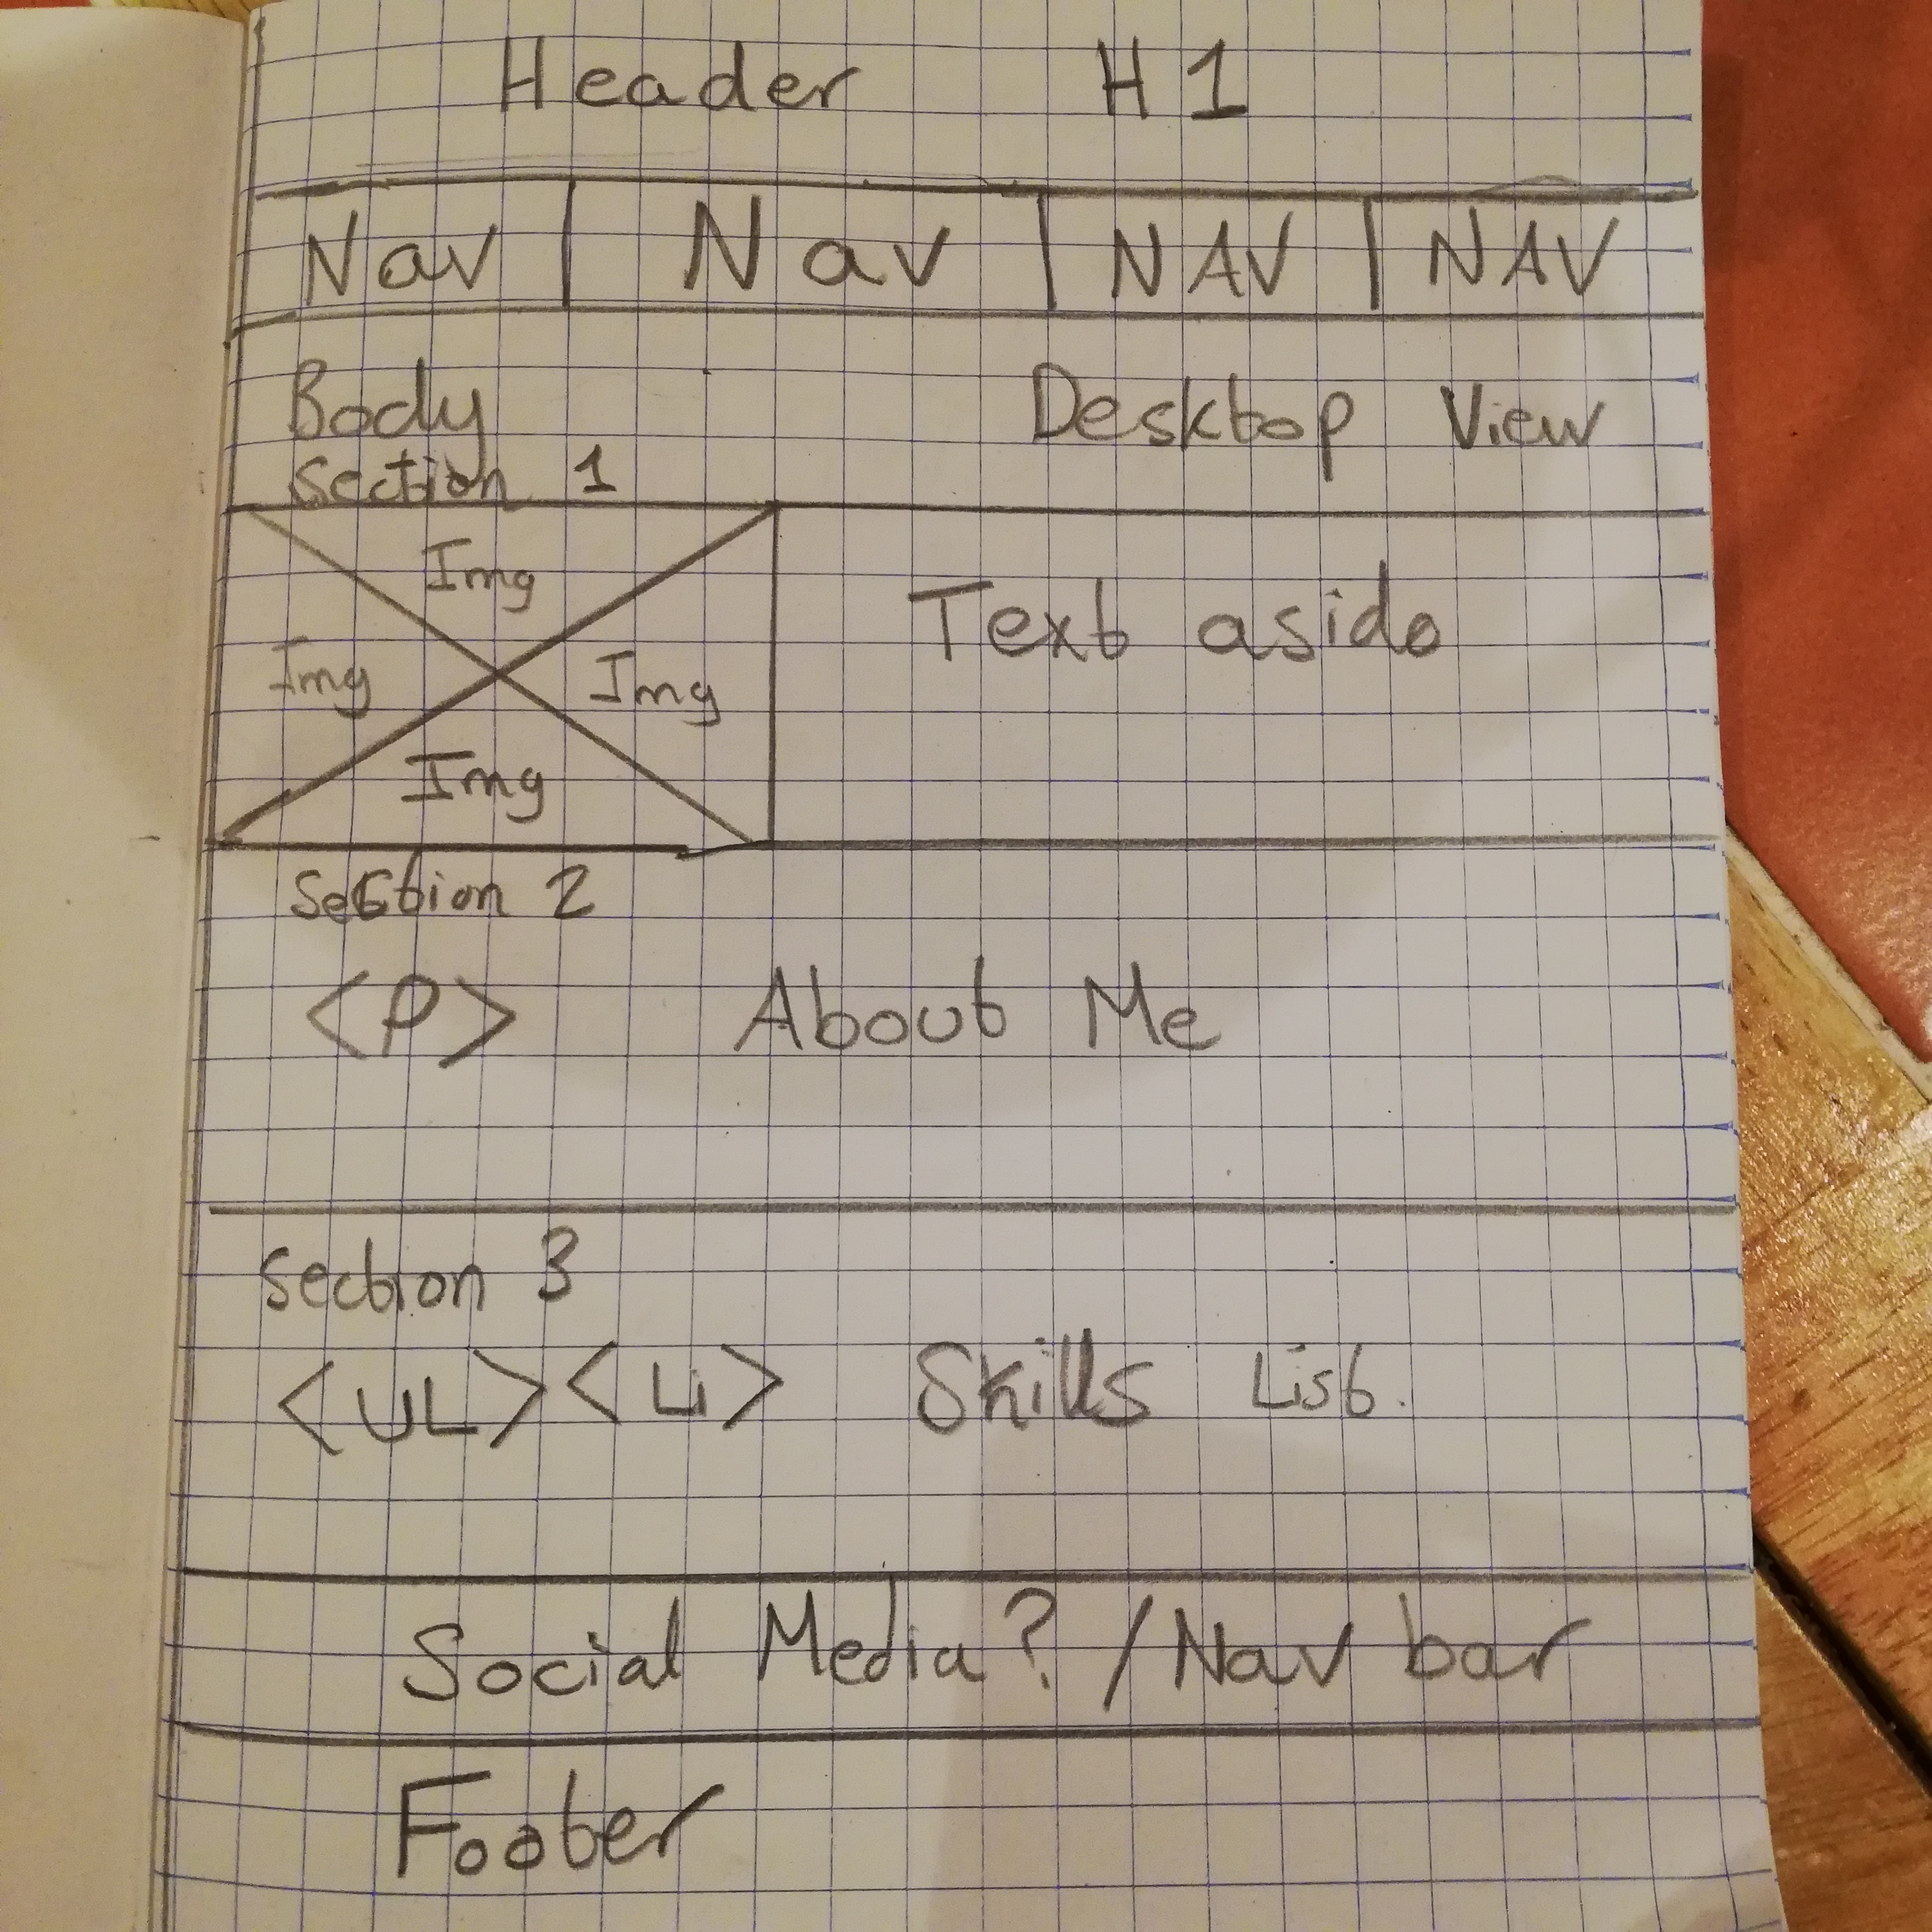 Header H1
Nav | Nav | NAV | NAV
Body Desktop View
section 1
Img
Text aside
Img Img
Img
Section 2
<P> About Me
section 3
<UL><Li> Skills List.
Social Media? / Nav bar
Footer